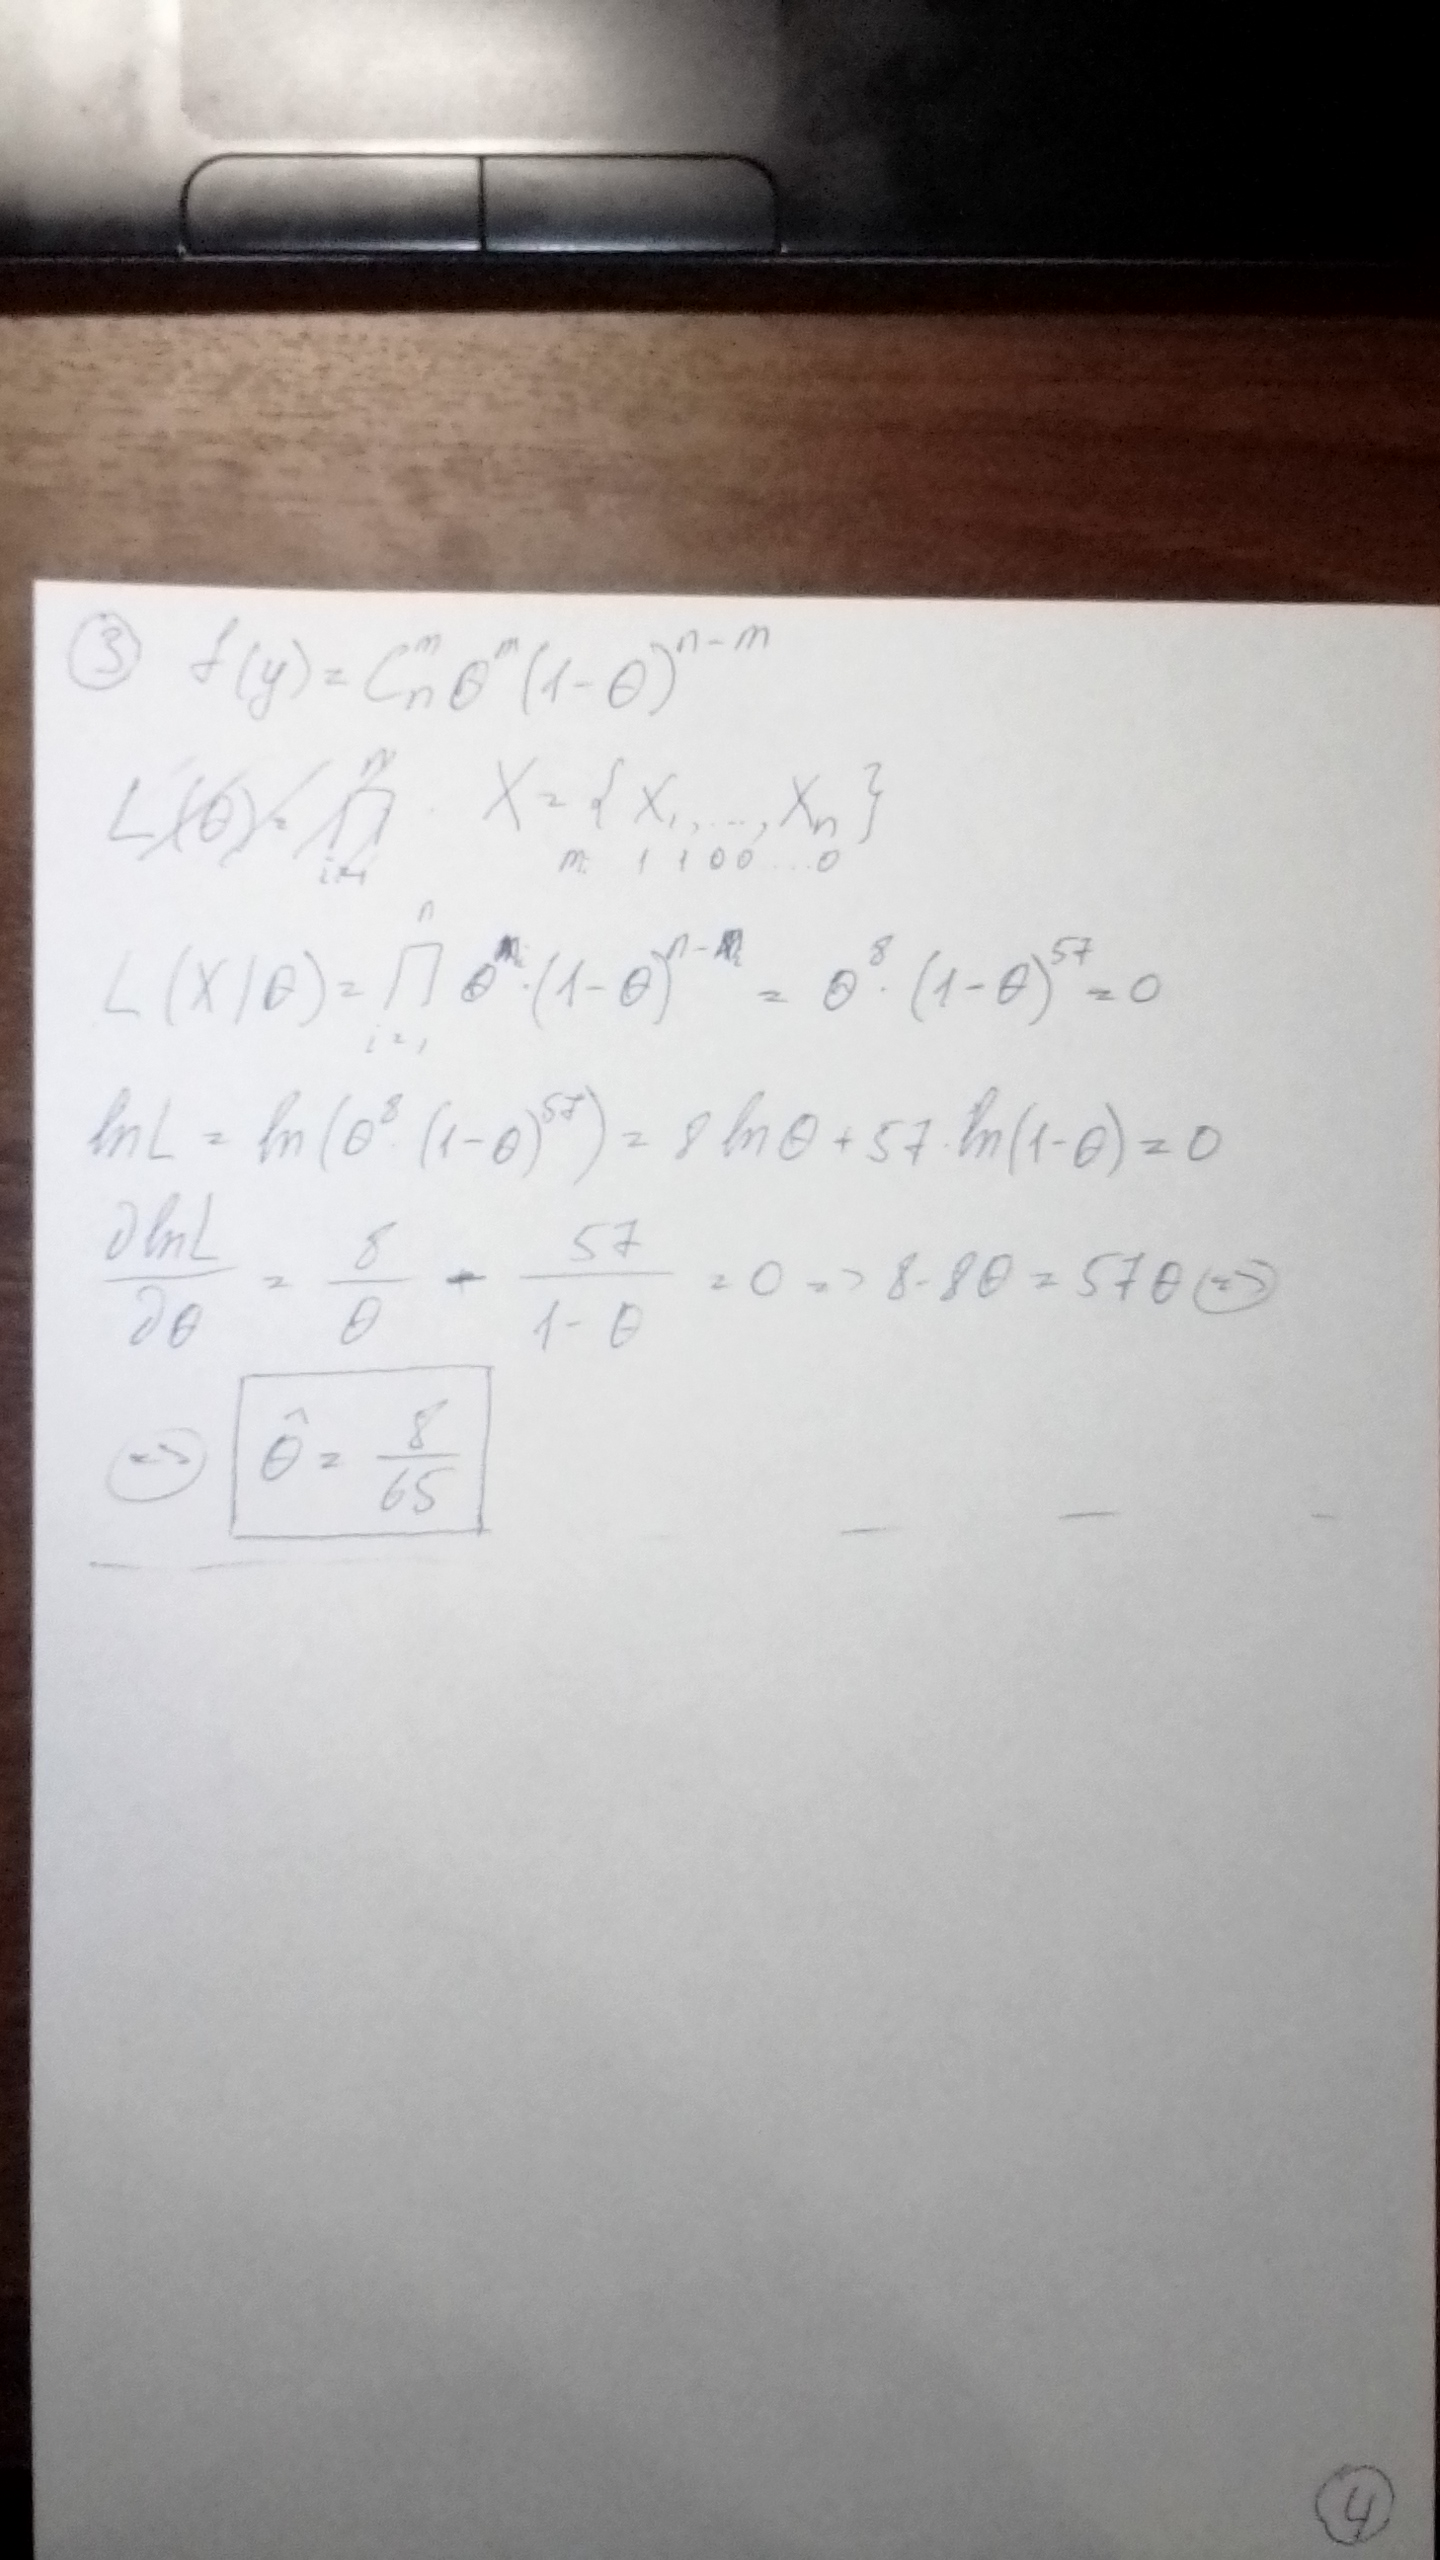 ③ f(y) = C_n^m θ^m (1-θ)^{n-m}
L(θ) = ∏_{i=1}^n . X = {X_1, ..., X_n}
m: 1 1 0 0 ... 0
L(X/θ) = ∏_{i=1}^n θ^{m_i} · (1-θ)^{n-m_i} = θ^8 · (1-θ)^{57} = 0
lnL = ln(θ^8 · (1-θ)^{57}) = 8 lnθ + 57 · ln(1-θ) = 0
∂lnL/∂θ = 8/θ - 57/(1-θ) = 0 => 8-8θ = 57θ =>
=> θ̂ = 8/65
④